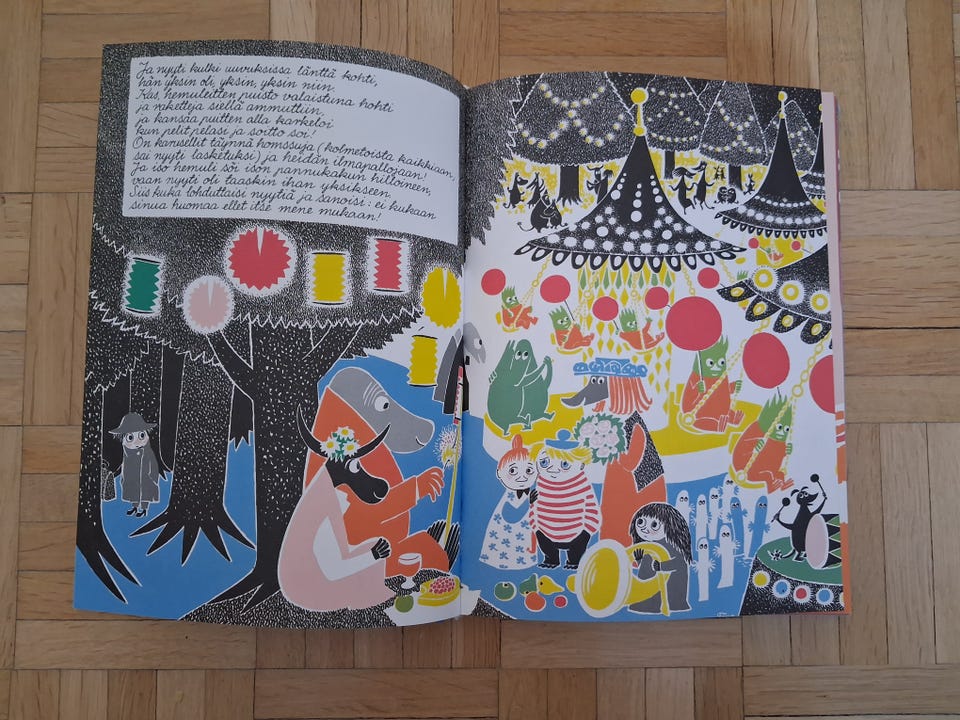 Ja nyyti kulki uuvuksissa länttä kohti,
hän yksin oli, yksin, yksin niin.
Kas, hemuleitten puisto valaistuna hohti
ja raketteja siellä ammuttiin,
ja kansaa puitten alla karkeloi
kun pelit pelasi ja soitto soi!
On karusellit täynnä homssuja (kolmetoista kaikkiaan,
sai nyyti lasketuksi) ja heidän ilmapallojaan!
Ja iso hemuli söi ison pannukakun hilloineen,
vaan nyyti oli taaskin ihan yksikseen.
Siis kuka lohduttaisi nyytiä ja sanoisi: ei kukaan
sinua huomaa ellet itse mene mukaan!